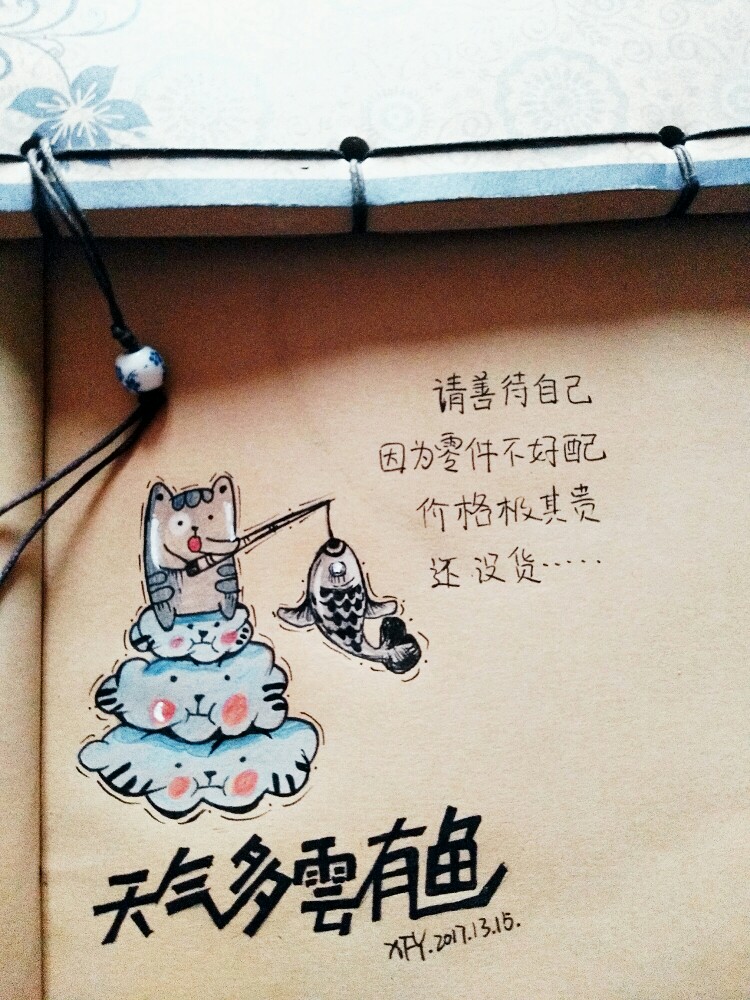 请善待自己
因为零件不好配
价格极其贵
还没货……
天气多雲有鱼
XFY.2017.13.15.